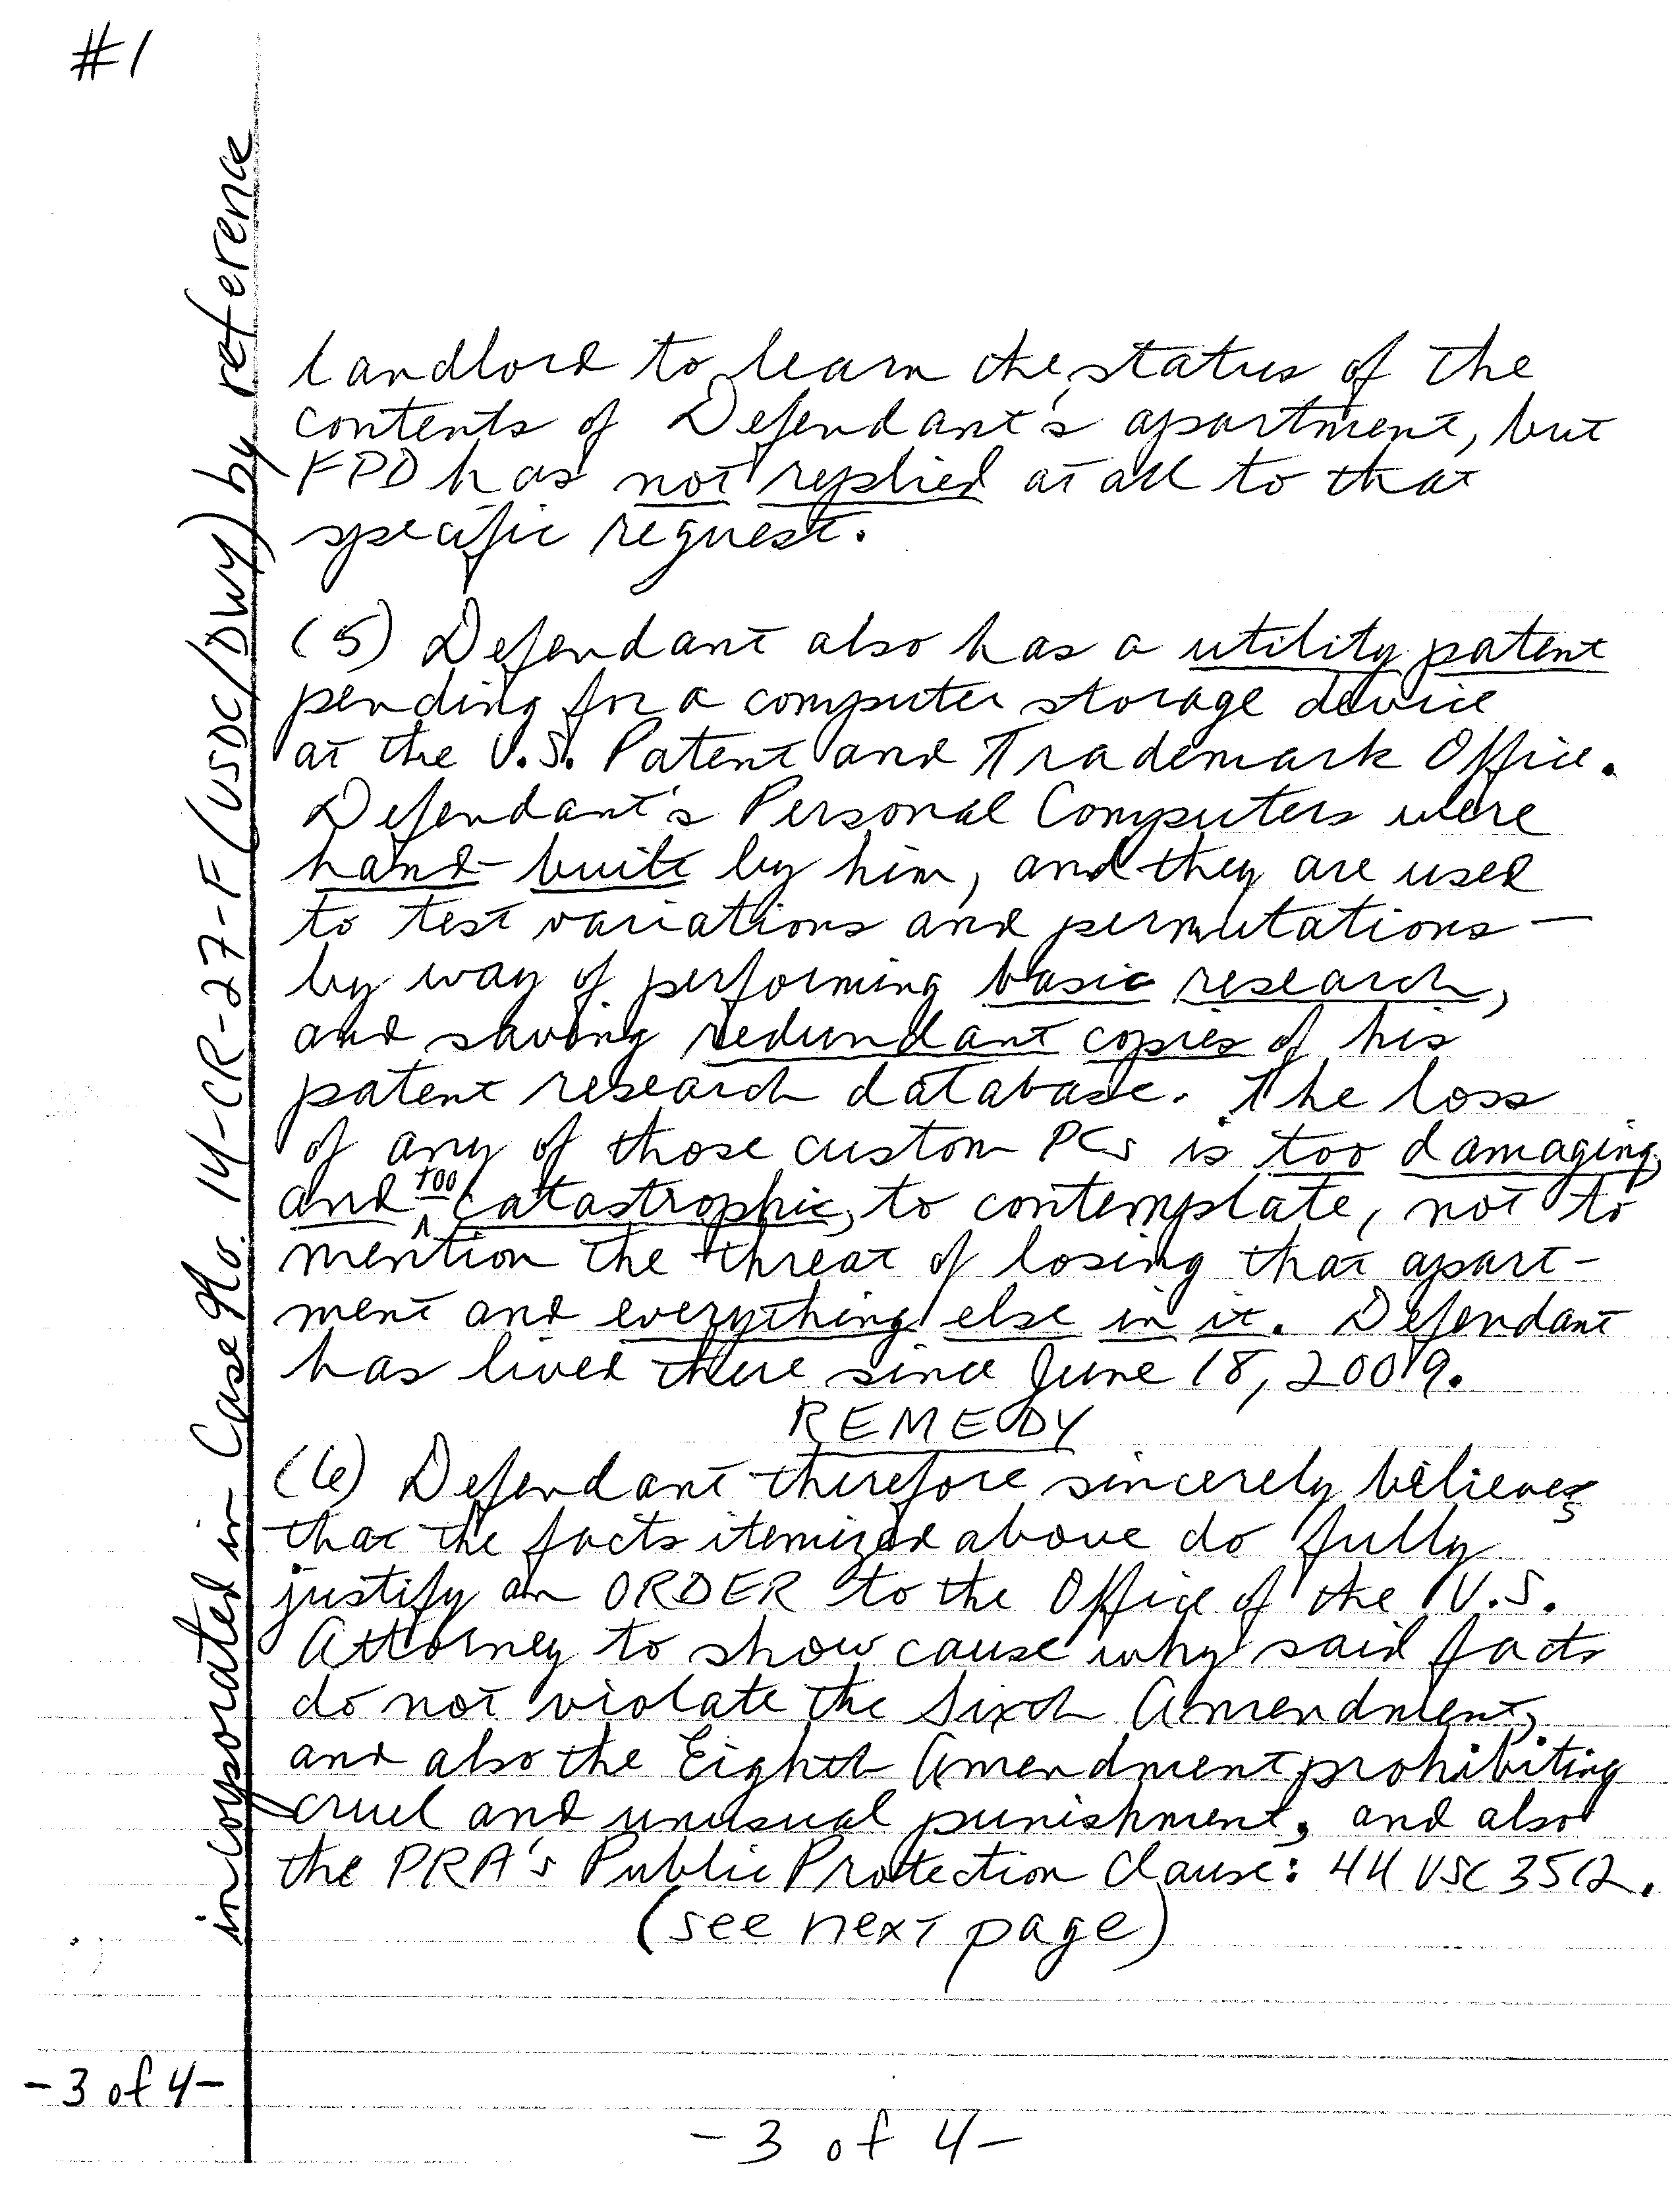 #1
incorporated in Case No. 14-CR-27-F (USDC/DWY) by reference
landlord to learn the status of the
contents of Defendant's apartment, but
FPD has not replied at all to that
specific request.
(5) Defendant also has a utility patent
pending for a computer storage device
at the U.S. Patent and Trademark Office.
Defendant's Personal Computers were
hand-built by him, and they are used
to test variations and permutations —
by way of performing basic research,
and saving redundant copies of his
patent research database. The loss
of any of those custom PCs is too damaging,
and too catastrophic, to contemplate, not to
mention the threat of losing that apart-
ment and everything else in it. Defendant
has lived there since June 18, 2009.
REMEDY
(6) Defendant therefore sincerely believes
that the facts itemized above do fully
justify an ORDER to the Office of the U.S.
Attorney to show cause why said facts
do not violate the Sixth Amendment,
and also the Eighth Amendment prohibiting
cruel and unusual punishment, and also
the PRA's Public Protection Clause: 44 USC 3512.
(see next page)
-3 of 4-
- 3 of 4 -